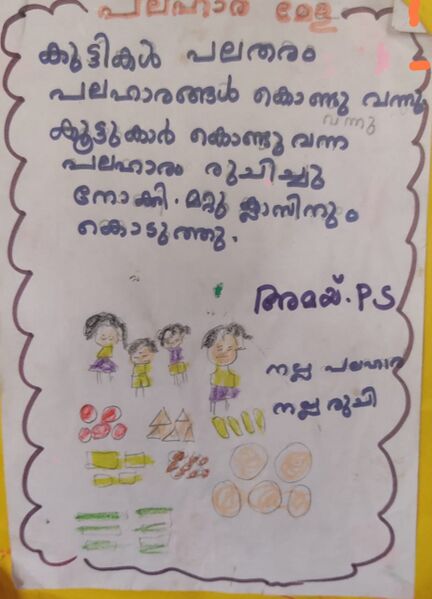 പലഹാര മേള
കുട്ടികൾ പലതരം
പലഹാരങ്ങൾ കൊണ്ടു വന്നു.
വന്നു
കൂട്ടുകാർ കൊണ്ടുവന്ന
പലഹാരം രുചിച്ചു
നോക്കി. മറ്റു ക്ലാസിനും
കൊടുത്തു.
അമയ്. P S
നല്ല പലഹാര
നല്ല രുചി